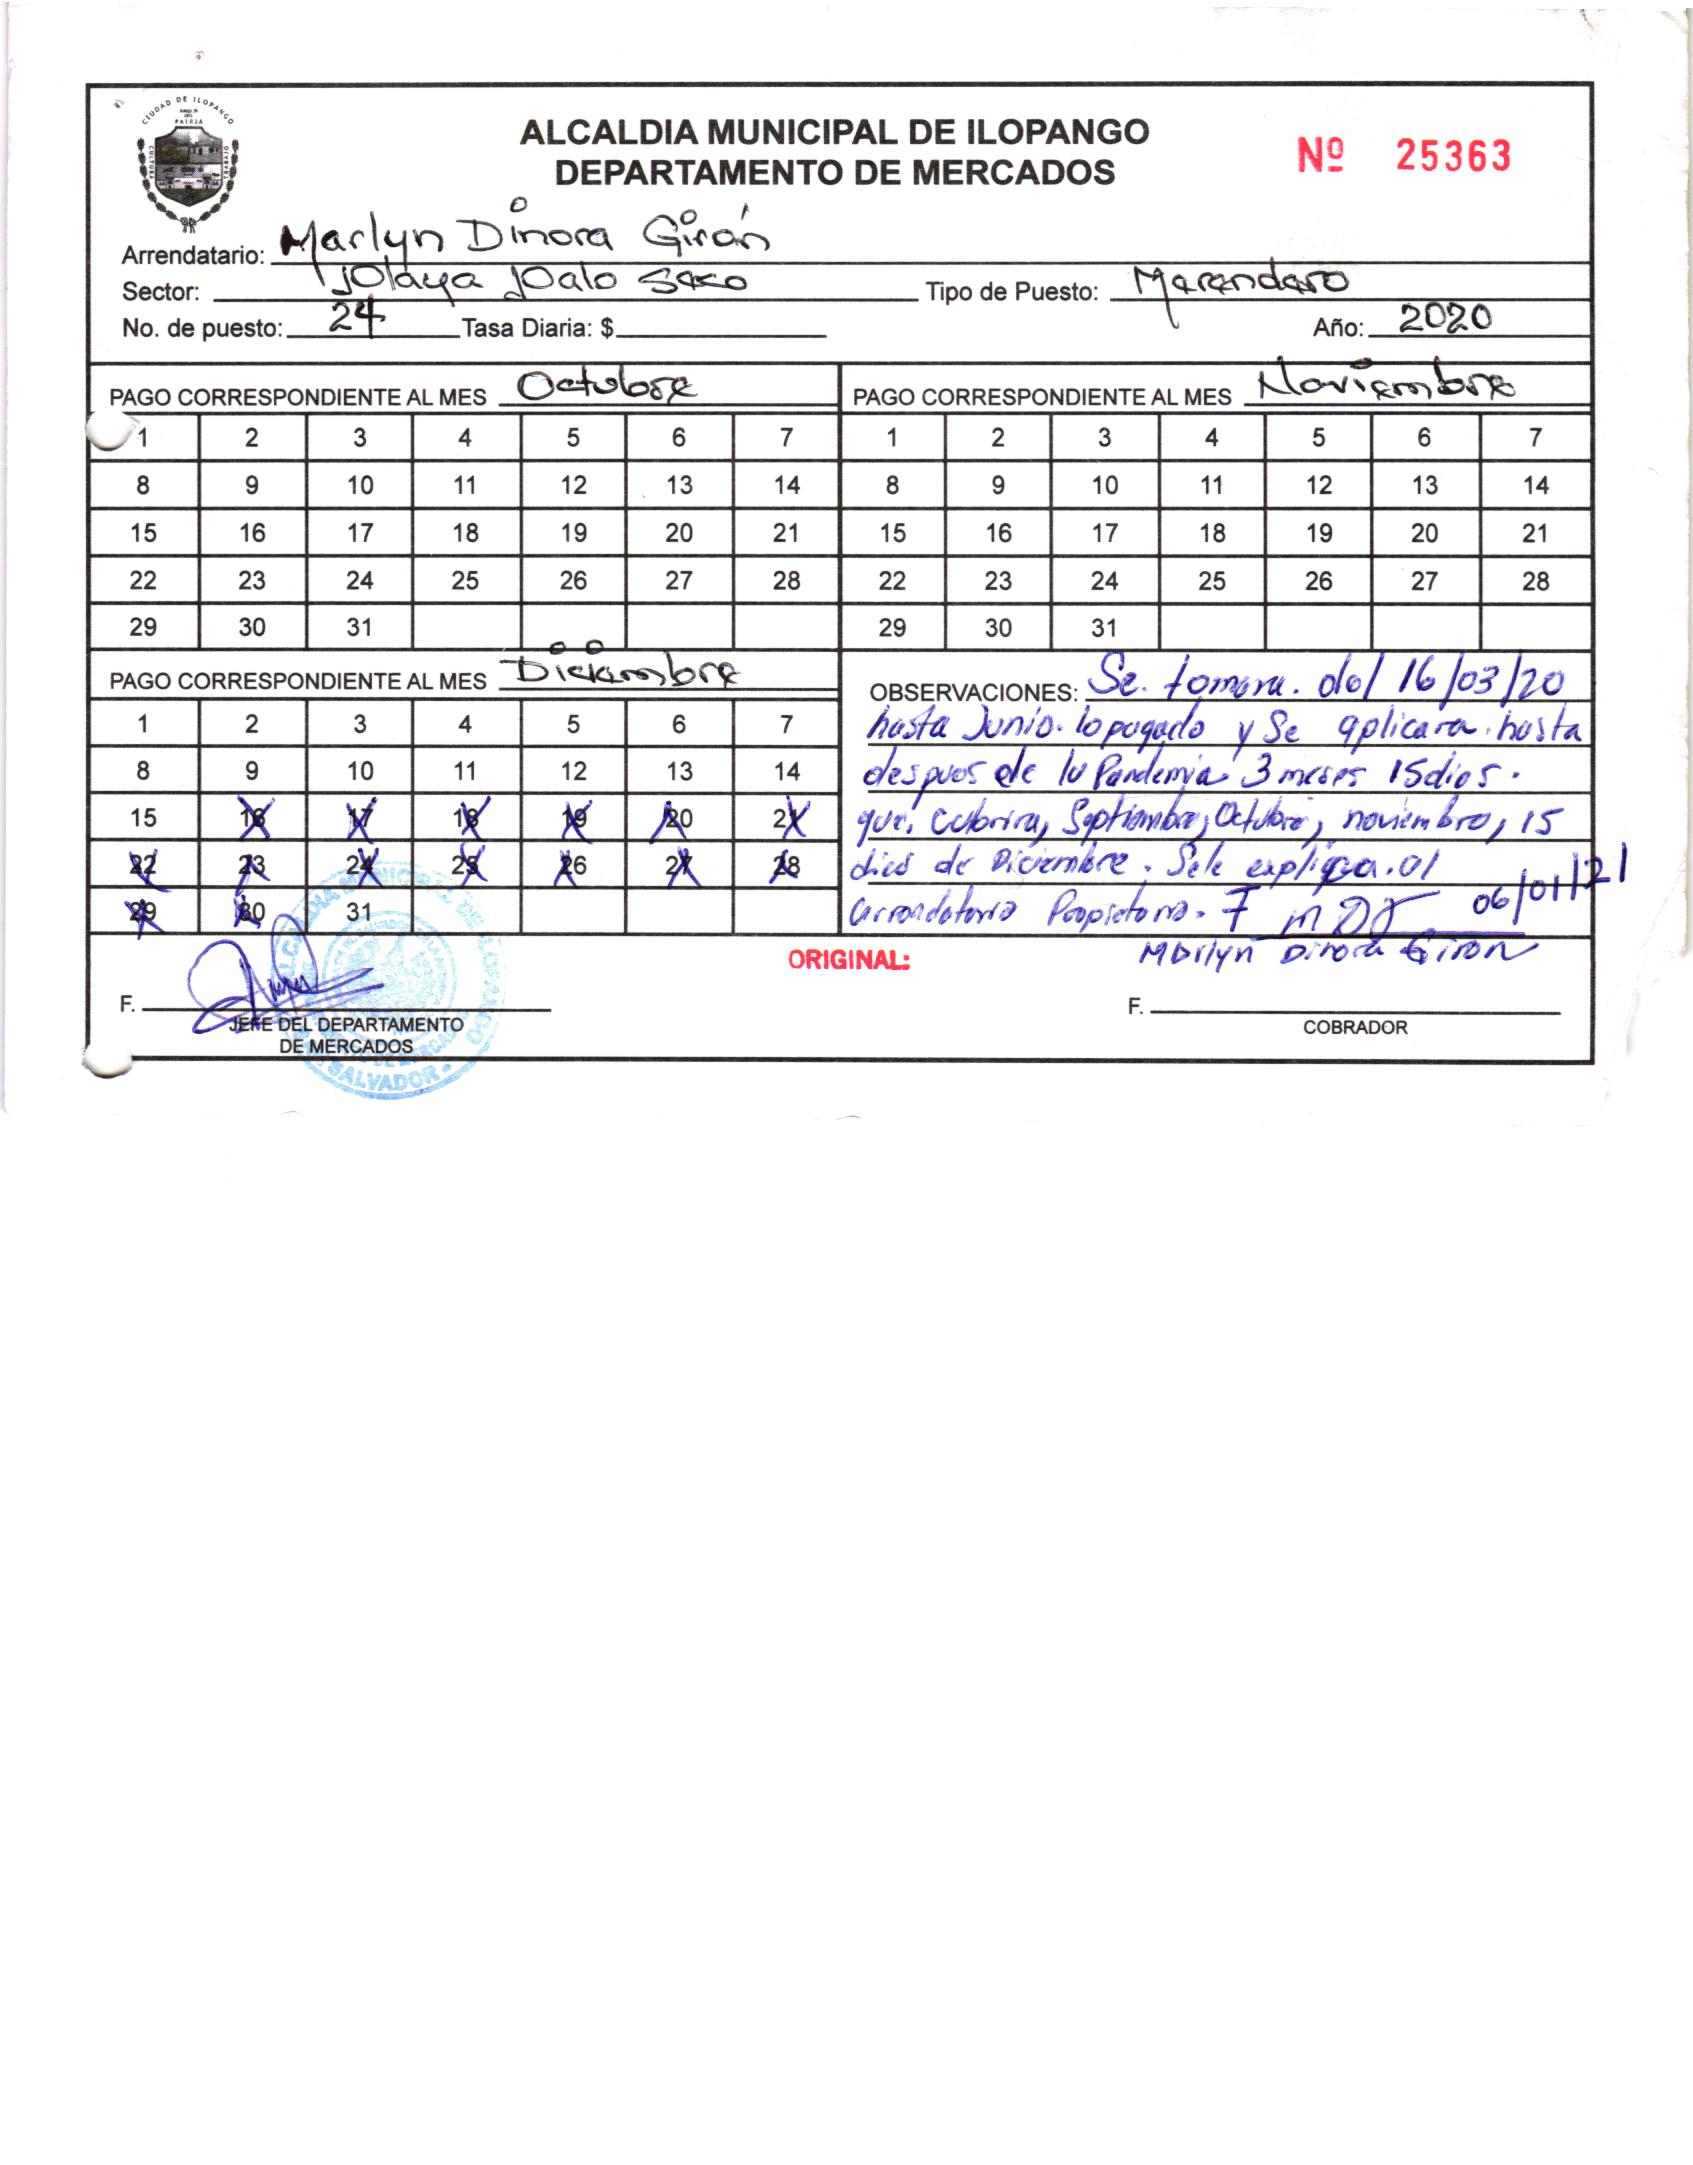 CIUDAD DE ILOPANGO
PATRIA
CULTURA
TRABAJO
ALCALDIA MUNICIPAL DE ILOPANGO
DEPARTAMENTO DE MERCADOS
Nº 25363
Arrendatario: Marlyn Dinora Girón
Sector: Playa Palo Seco Tipo de Puesto: Merendero
No. de puesto: 24 Tasa Diaria: $ Año: 2020
PAGO CORRESPONDIENTE AL MES Octubre
1 2 3 4 5 6 7
8 9 10 11 12 13 14
15 16 17 18 19 20 21
22 23 24 25 26 27 28
29 30 31
PAGO CORRESPONDIENTE AL MES Noviembre
1 2 3 4 5 6 7
8 9 10 11 12 13 14
15 16 17 18 19 20 21
22 23 24 25 26 27 28
29 30 31
PAGO CORRESPONDIENTE AL MES Diciembre
1 2 3 4 5 6 7
8 9 10 11 12 13 14
15 16 17 18 19 20 21
22 23 24 25 26 27 28
29 30 31
OBSERVACIONES: Se. tomara. del 16/03/20
hasta Junio. lo pagado y Se aplicara. hasta
despues de la Pandemia 3 meses 15 dias.
que. cubrira, Septiembre, Octubre, noviembre, 15
dias de Diciembre. Se le explica. al
arrendatario Propietario. F MDG 06/01/21
Marlyn Dinora Giron
ORIGINAL:
F.
JEFE DEL DEPARTAMENTO
DE MERCADOS
F.
COBRADOR
SALVADOR